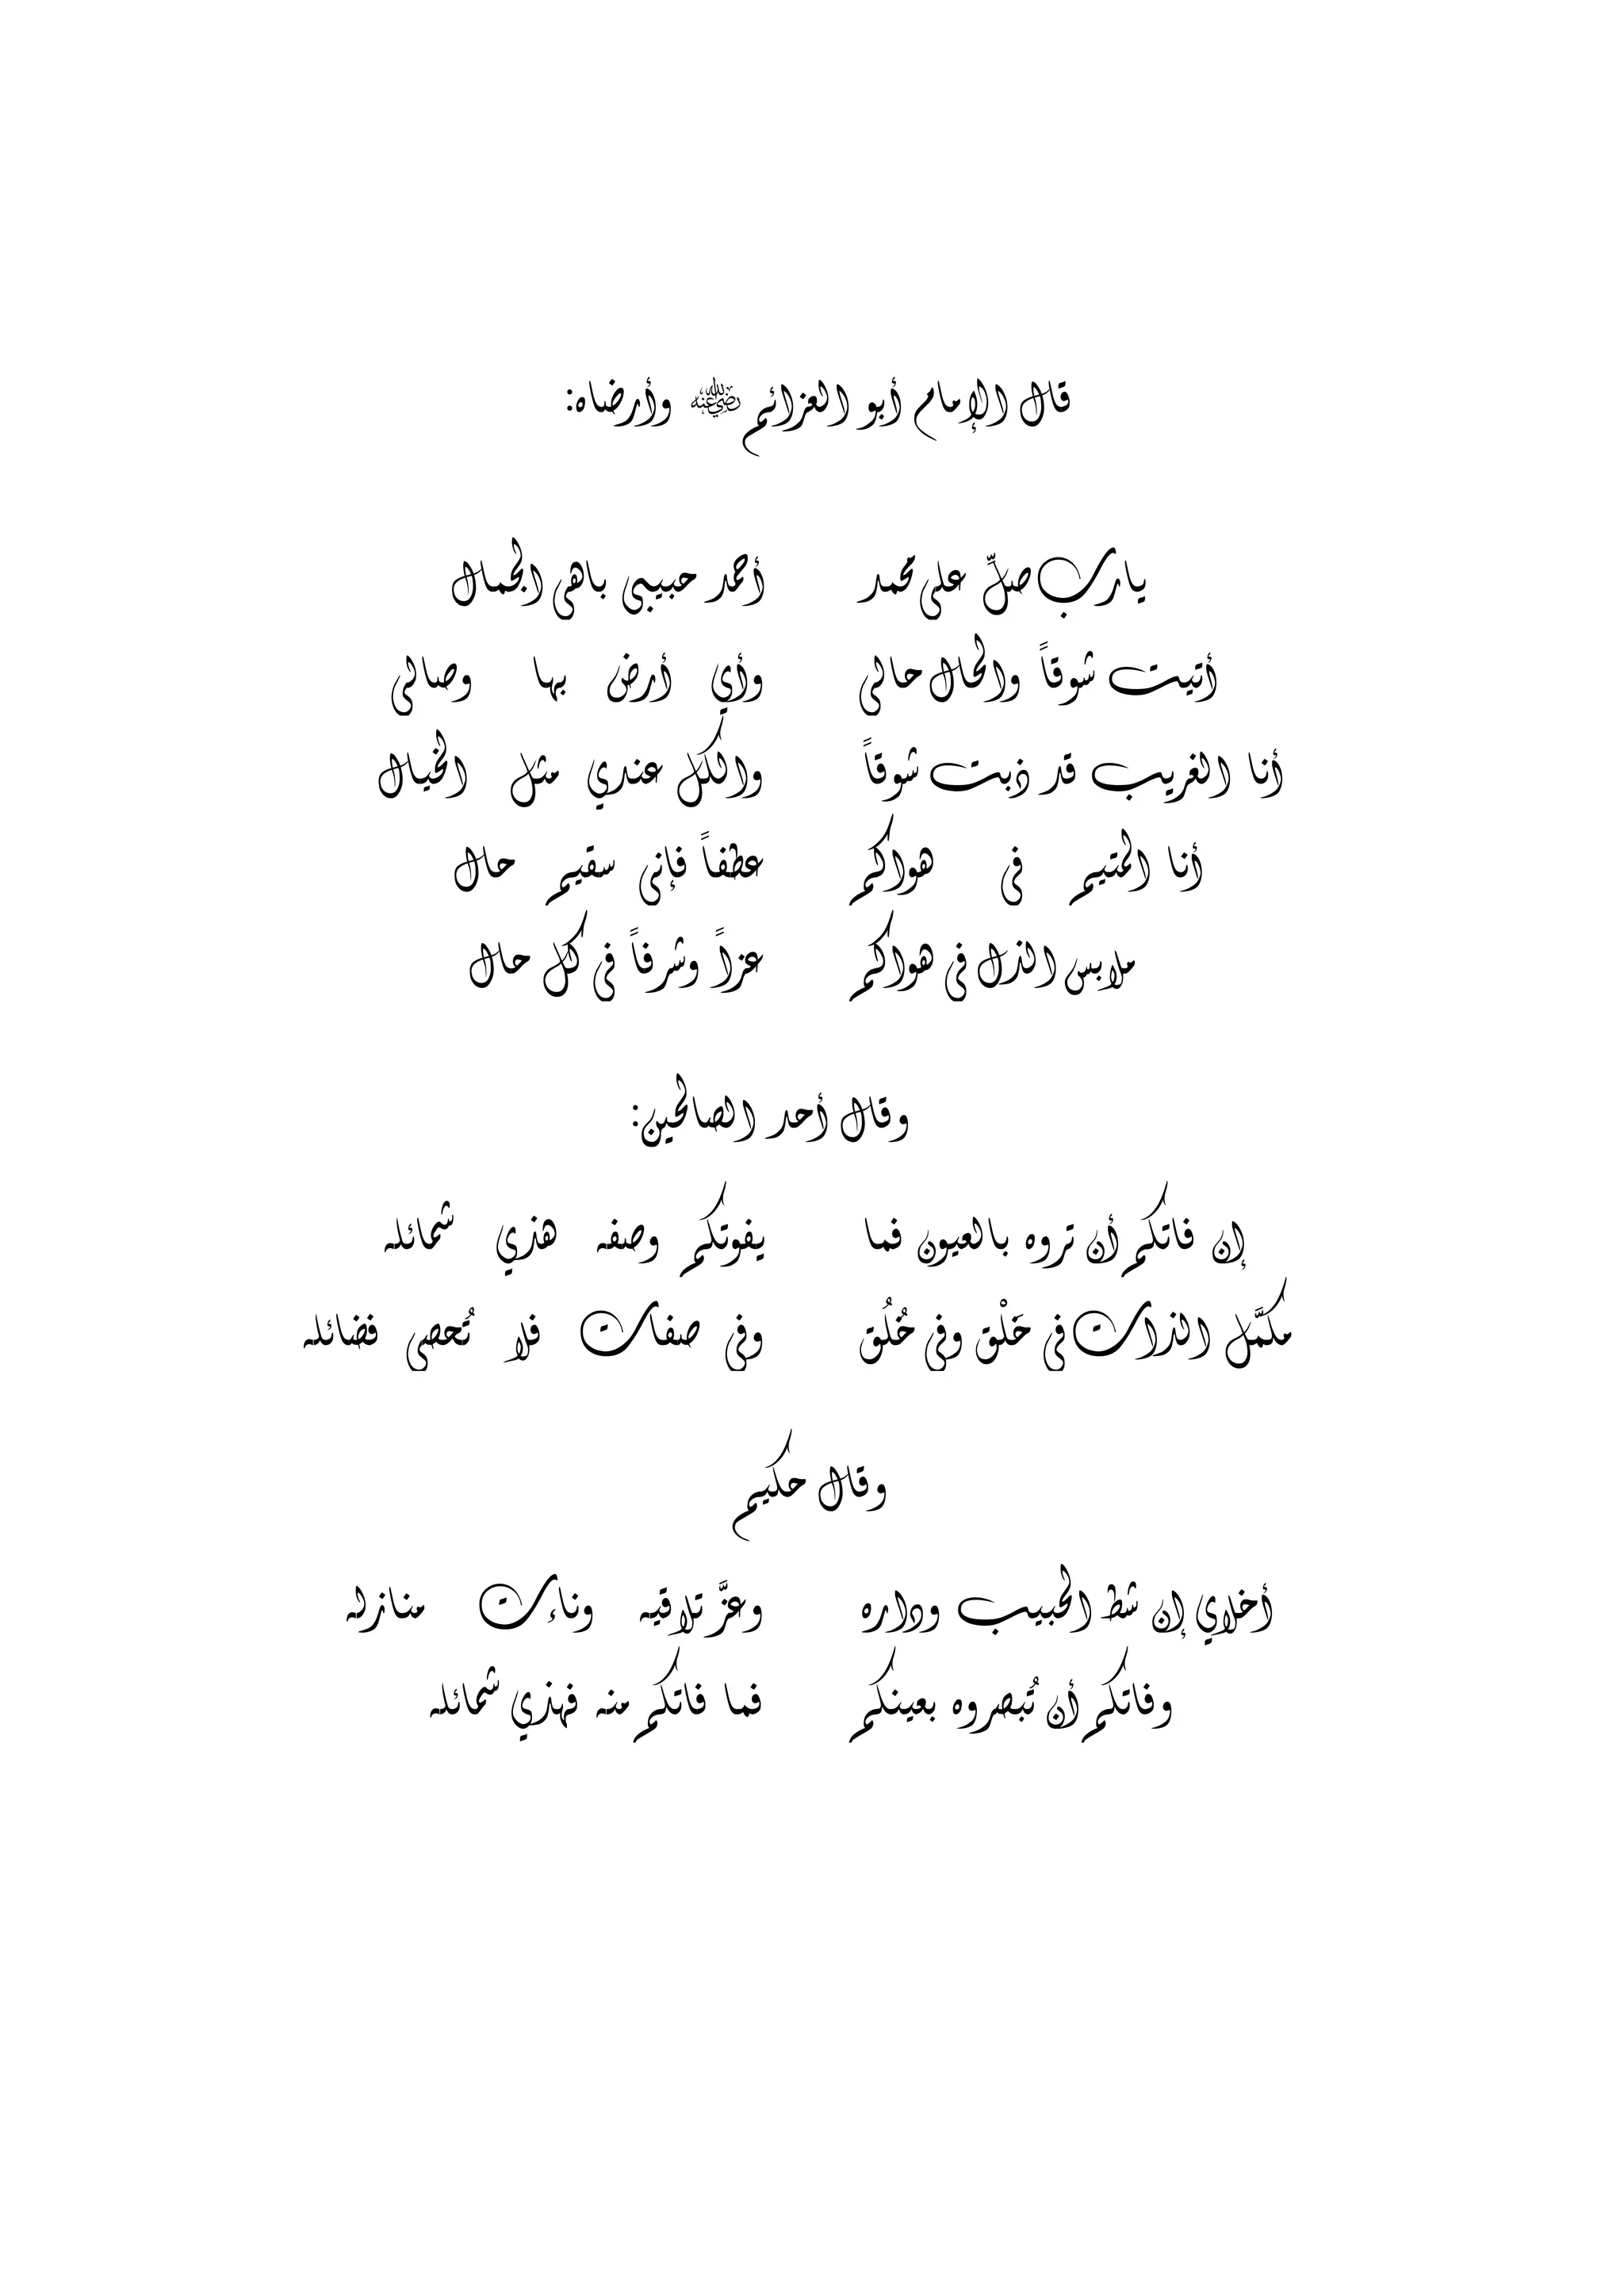 قال الإمام أبو العزائم رضي الله عنه وأرضاه:
يارب صلِّ على محمد أحمد حبيبي باهى الجمال
أتيت شوقاً والحال حالي وأي أرض بها وصالى
أنا الغريب قد ذبت شوقاً والكل عندي مثل الخيال
أنا المتيم فى هواكم عطفاً فإنى سقيم حال
ملابس الذل فى هواكم عزاً وشرفاً فى كل حال
وقال أحد الصالحين:
إن فاتكم أن تروه بالعيون فما يفوتكم وصفه هذي شمائله
مكمَّل الذات فى خَلْق وفى خُلُق وفى صفات فلا تُحصى فضائله
وقال حكيم
أخلاي إن شط الحبيب وداره وعزَّ تلاقيه وناءت منازله
وفاتكم أن تُبصروه بعينكم فما فاتكم منه فهذي شمائله